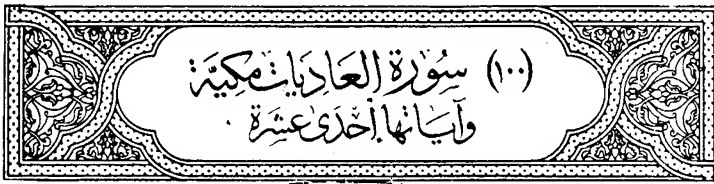 (١٠٠) سُورَة العَاديَات مكيَّة
وَآيَاتها إحْدَى عَشرَة